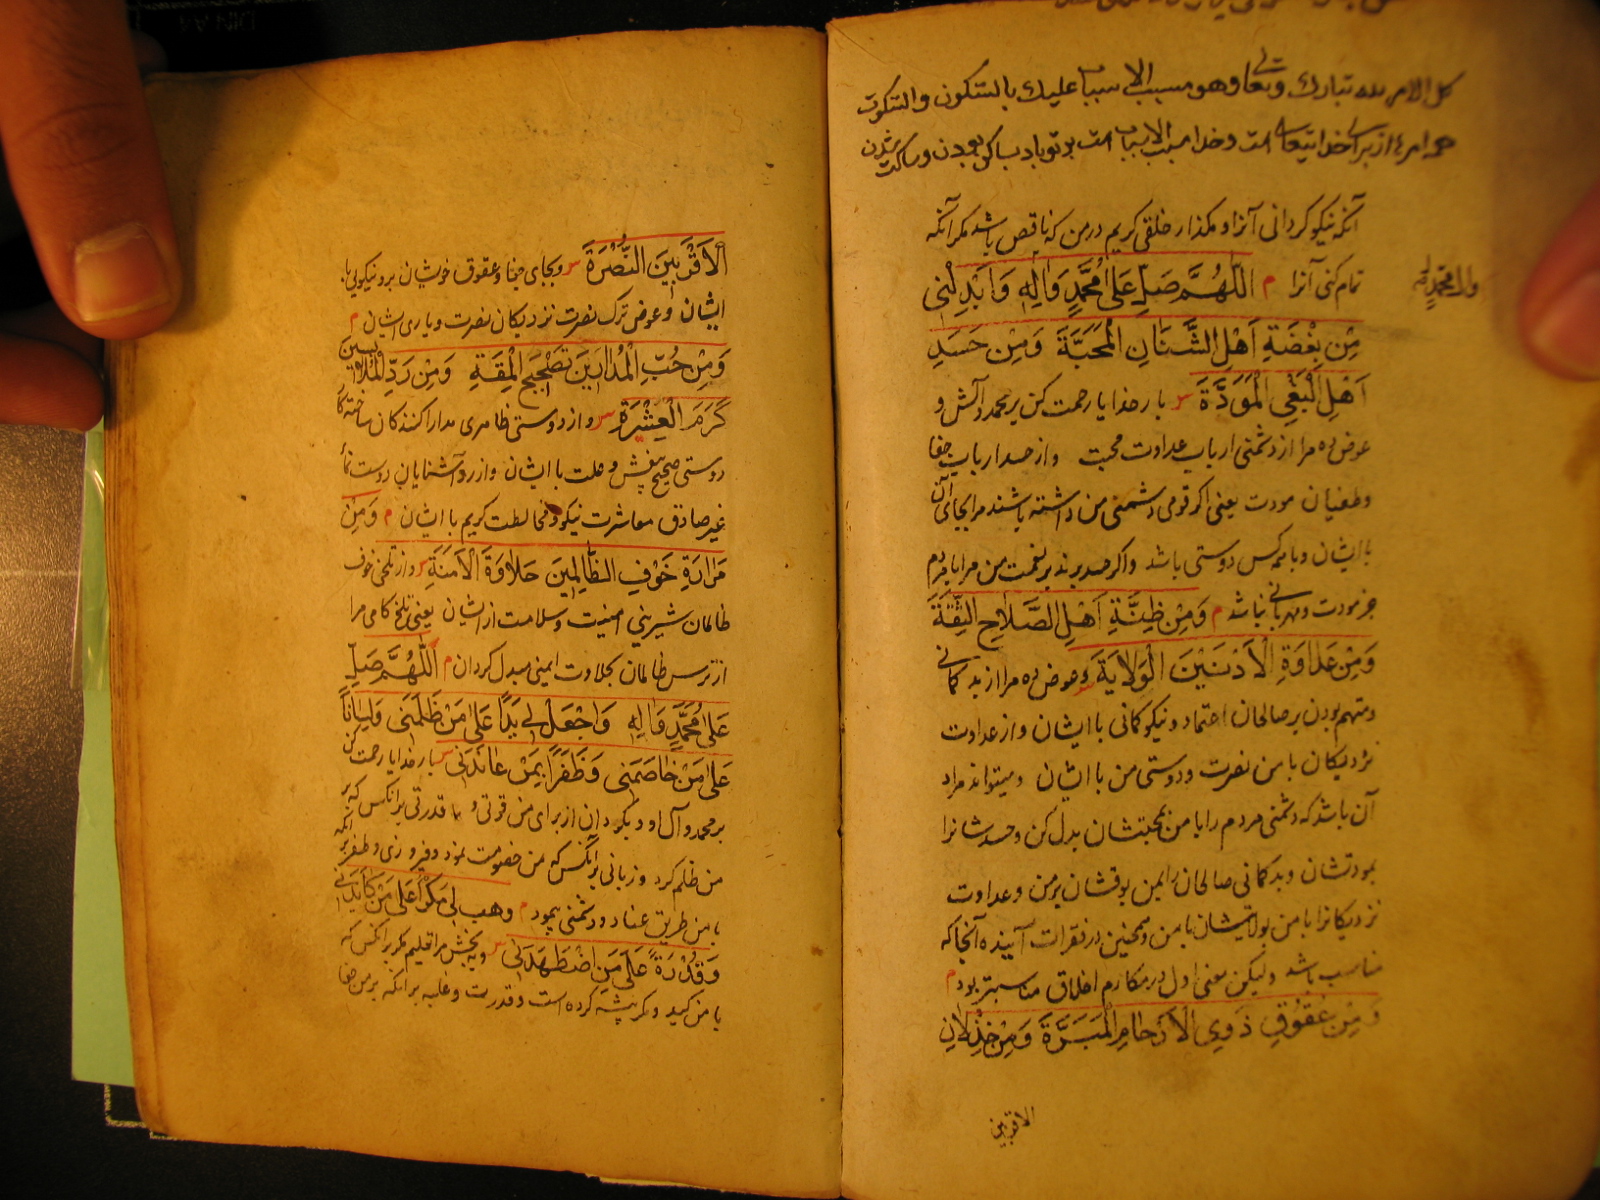 كل الامر لله تبارك وتعالى وهو مسبب الاسباب عليك بالسكون والسكوت
همه امرها از براى خدايتعالى است وخدا مسبب الاسباب است بر تو باد بساكن بودن وساكت شدن
آنكه نيكو كردانى آنرا ومكذار خلقى كريم در من كه ناقص باشد مكر آنكه
تمام كنى آنرا م اَللّٰهُمَّ صَلِّ عَلٰى مُحَمَّدٍ وَاٰلِهِ وَاَبْدِلْنى
وال محمد
مِنْ بِغْضَةِ اَهْلِ الشَّنَاٰنِ الْمَحَبَّةَ وَمِنْ حَسَدِ
اَهْلِ الْبَغْىِ الْمَوَدَّةَ س بار خدايا رحمت كن بر محمد وآلش و
عوض ده مرا از دشمنى ارباب عداوت محبت واز حسد ارباب جفا
وطغيان مودت يعنى اكر قومى دشمنى من داشته باشند مرا بجاى آن
با ايشان وبا همه كس دوستى باشد واكر حسد برند بر نعمت من مرا با مردم
جز مودت ومهربانى نباشد م وَمِنْ ظِنَّةِ اَهْلِ الصَّلَاحِ الثِّقَةَ
وَمِنْ عَدَاوَةِ الْاَدْنَيْنَ الْوَلَايَةَ س وعوض ده مرا از بد كمانى
ومتهم بودن بر صالحان اعتماد ونيكو كمانى با ايشان واز عداوت
نزديكان با من نصرت ودوستى من با ايشان وميتواند مراد
آن باشد كه دشمنى مردم را با من بمحبتشان بدل كن وحسدشانرا
بمودتشان وبدكمانى صالحان را بمن بوثوقشان بر من وعداوت
نزديكانرا با من بولايتشان با من وهمچنين در فقرات آينده آنجا كه
مناسب باشد وليكن معنى اول در مكارم اخلاق مناسبتر بود م
وَمِنْ عُقُوقِ ذَوِى الْاَرْحَامِ الْمَبَرَّةَ وَمِنْ خِذْلَانِ
الاقربين
اَلْاَقْرَبينَ النُّصْرَةَ س وبجاى جفا وعقوق خوشان بر ونيكويى با
ايشان وعوض ترك نصرت نزديكان نصرت ويارى ايشان م
وَمِنْ حُبِّ الْمُدَارينَ تَصْحيحَ الْمِقَةِ وَمِنْ رَدِّ الْمُلَابِسينَ
كَرَمَ الْعِشْرَةِ س واز دوستى ظاهرى مدارا كنندكان
دوستى صحيح بيغش وعلت با ايشان واز رد آشنايان دوست نما
غير صادق معاشرت نيكو ومخالطت كريم با ايشان م وَمِنْ
مَرَارَةِ خَوْفِ الظَّالِمينَ حَلَاوَةَ الْاَمَنَةِ س واز تلخى خوف
ظالمان شيرينى امنيت وسلامت از ايشان يعنى تلخ كامى مرا
از ترس ظالمان بحلاوت ايمنى مبدل كردان م اَللّٰهُمَّ صَلِّ
عَلٰى مُحَمَّدٍ وَاٰلِهِ وَاجْعَلْ لى يَدًا عَلٰى مَنْ ظَلَمَنى وَلِسَانًا
عَلٰى مَنْ خَاصَمَنى وَظَفَرًا بِمَنْ عَانَدَنى س بار خدايا رحمت كن
بر محمد وآل او وبكردان از براى من قوتى و قدرتى بر آنكس كه بر
من ظلم كرد وزبانى بر آنكس كه من خصومت نمود وفيروزى وظفر بر آنكه
با من طريق عناد ودشمنى پيمود م وهب لى مَكْرًا عَلٰى مَنْ كَايَدَنى
وَقُدْرَةً عَلٰى مَنِ اضْطَهَدَنى س وببخش مرا تعليم مكر بر آنكس كه
با من كيد ومكر پيشه كرده است وقدرت وغلبه بر آنكه بر من جفا